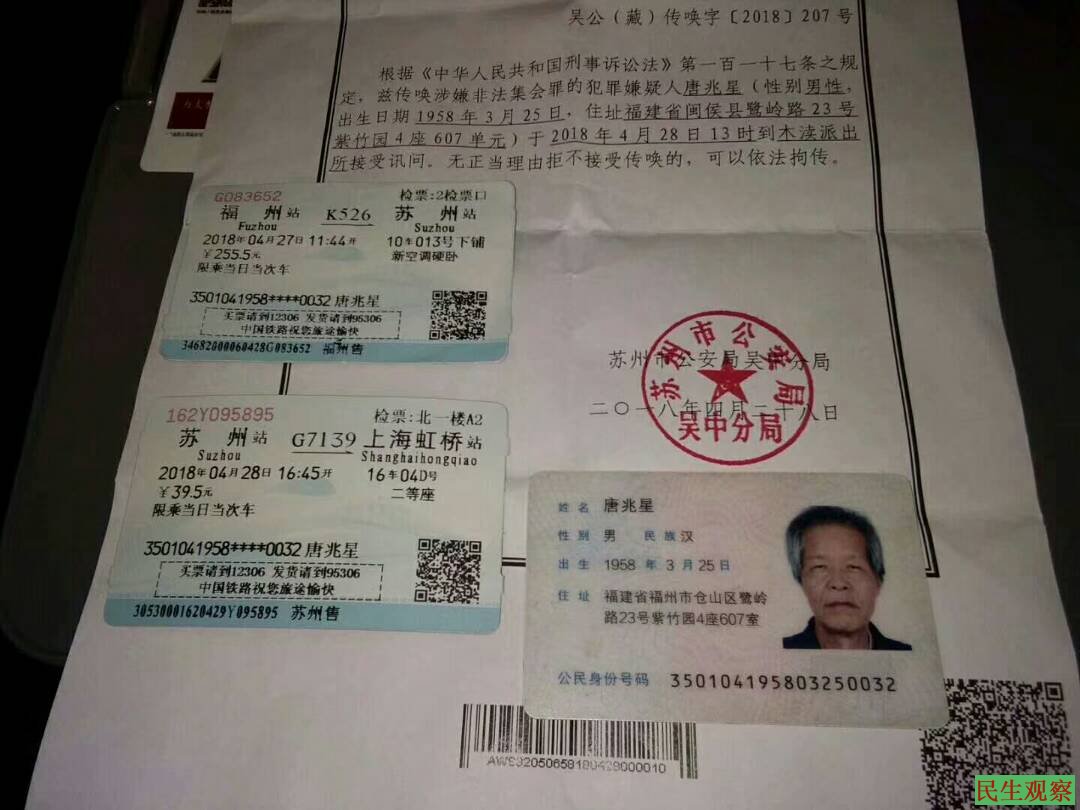 吴公（藏）传唤字〔2018〕207号
根据《中华人民共和国刑事诉讼法》第一百一十七条之规
定，兹传唤涉嫌非法集会罪的犯罪嫌疑人唐兆星（性别男性，
出生日期1958年3月25日，住址福建省闽侯县鹭岭路23号
紫竹园4座607单元）于2018年4月28日13时到木渎派出
所接受讯问。无正当理由拒不接受传唤的，可以依法拘传。
G083652 检票:2检票口
福州站 K526 苏州站
Fuzhou Suzhou
2018年04月27日11:44开 10车013号下铺
￥255.5元 新空调硬卧
限乘当日当次车
3501041958****0032唐兆星
买票请到12306 发货请到95306
中国铁路祝您旅途愉快
34682000060428G083652 福州售
苏州市公安局吴中分局
二〇一八年四月二十八日
苏州市公安局
吴中分局
162Y095895 检票:北一楼A2
苏州站 G7139 上海虹桥站
Suzhou Shanghaihongqiao
2018年04月28日16:45开 16车04D号
￥39.5元 二等座
限乘当日当次车
3501041958****0032唐兆星
买票请到12306 发货请到95306
中国铁路祝您旅途愉快
30530001620429Y095895 苏州售
姓名 唐兆星
性别 男 民族 汉
出生 1958年3月25日
住址 福建省福州市仓山区鹭岭
路23号紫竹园4座607室
公民身份号码 350104195803250032
民生观察